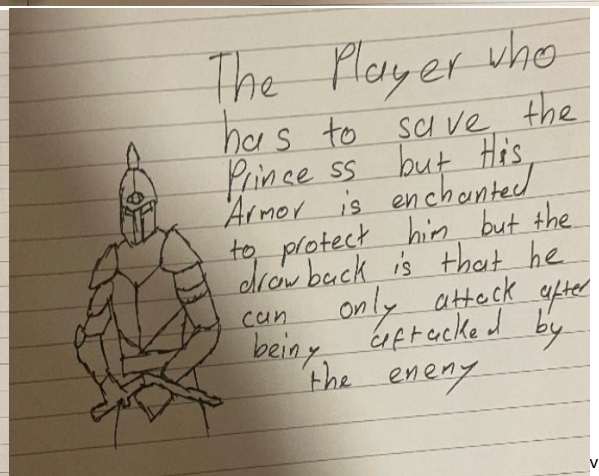 The Player who
has to save the
Princess but His
Armor is enchanted
to protect him but the
drawback is that he
can only attack after
being aftracked by
the eneny
v